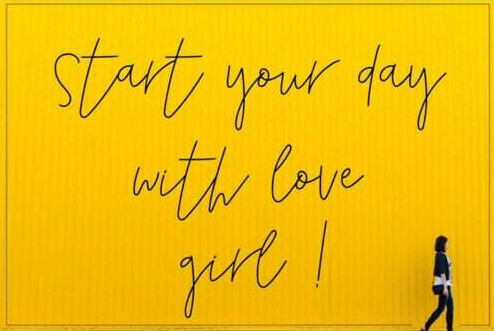 Start your day
with love
girl !